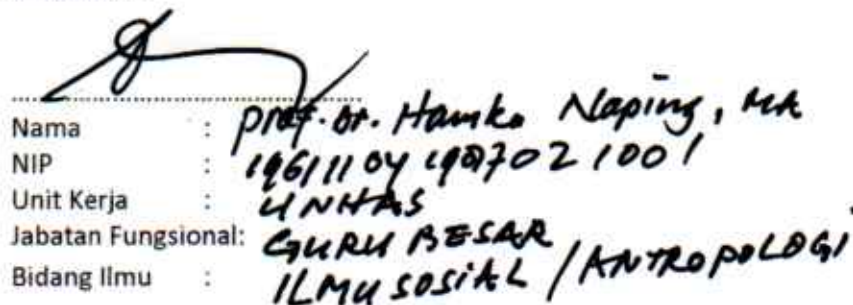 Nama : Prof. Dr. Hamka Naping, MA
NIP : 19611104 198702 1001
Unit Kerja : UNHAS
Jabatan Fungsional: GURU BESAR
Bidang Ilmu : ILMU SOSIAL / ANTROPOLOGI